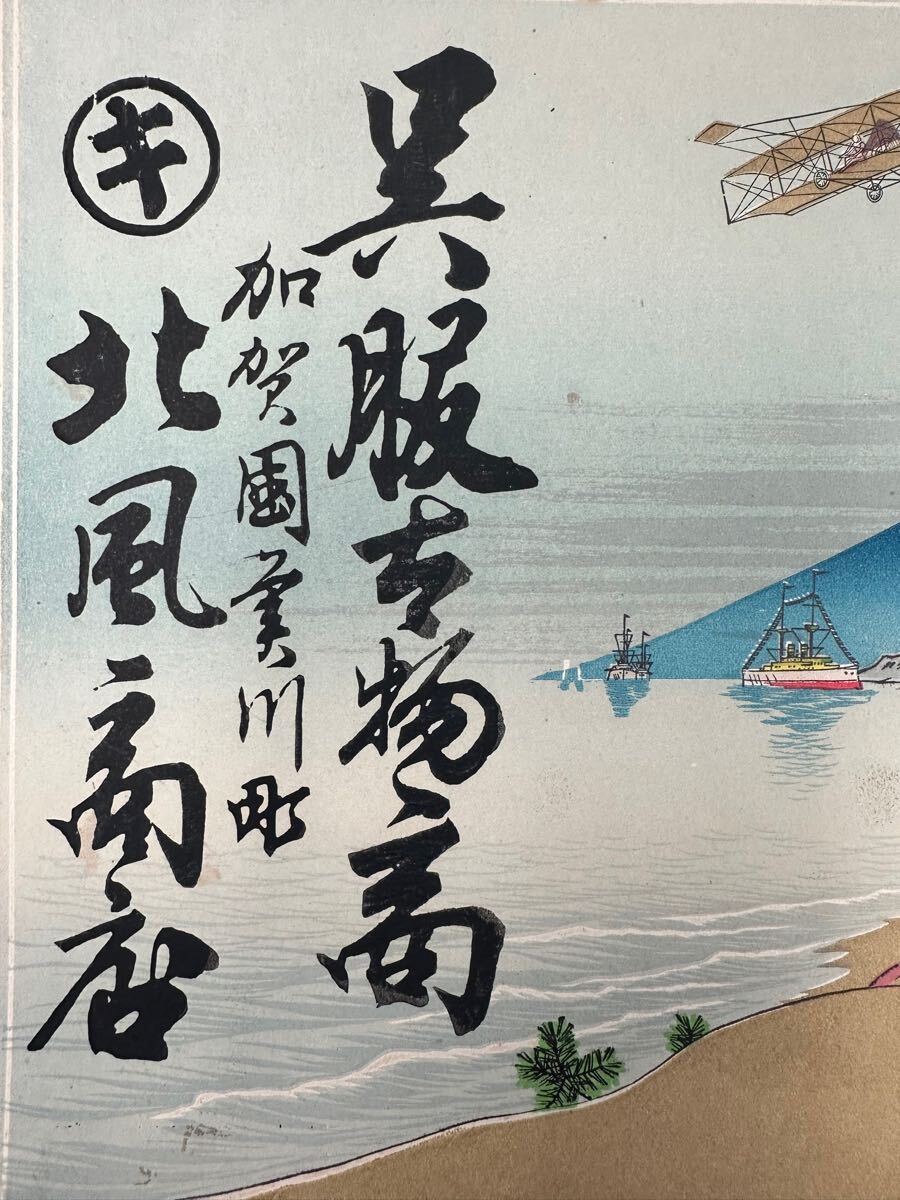 呉服古物商
加賀國美川町
キ
北風商店